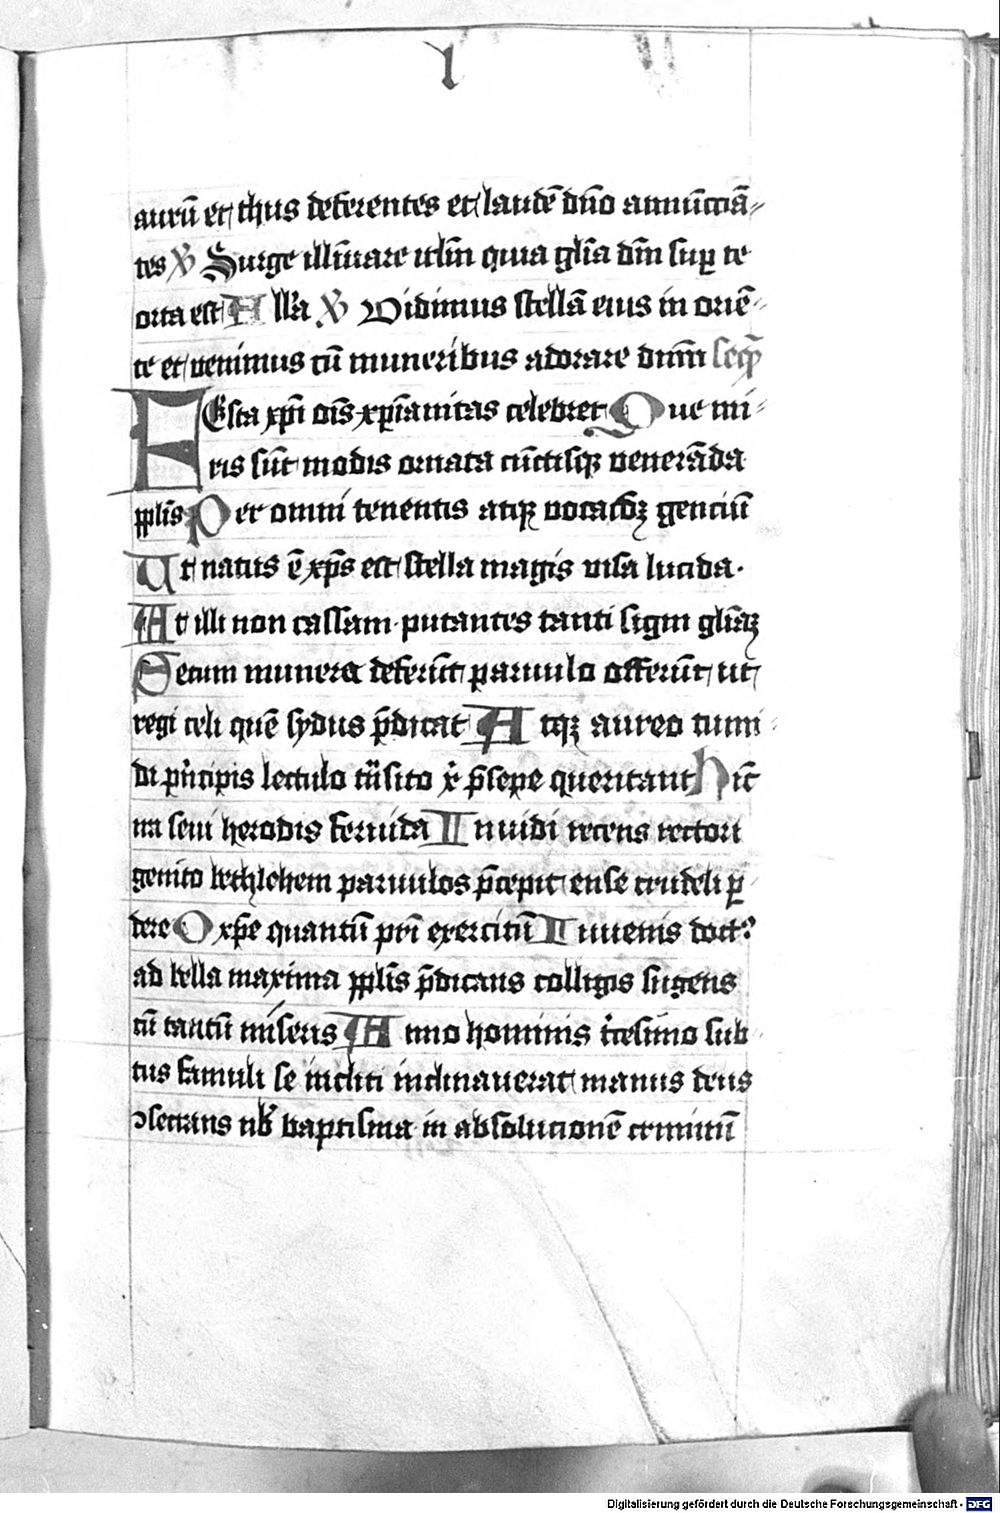 l
aurū et thus deferentes et laudē dn̄o annūcciā-
tes ꝟ Surge illūinare ihr̄lm quia glīa dn̄i suꝑ te
orta est A ll'a ꝟ Vidimus stellā eius in oriē-
te et venimus cū muneribus adorare dnm̄ seq̄
Festa xp̄i ōis xp̄ianitas celebret Que mi-
ris sūt modis ornata cūctisqꝫ venerāda
ppl̄is Per omni tenentis atqꝫ vocacōꝫ genciū
Ut natus ē xp̄s est stella magis visa lucida.
At illi non cassam putantes tanti signi glīaꝫ
Secum munera deferūt paruulo offerūt ut
regi celi quē sydus p̄dicat Atqꝫ aureo tumi-
di pͥncipis lectulo tͣnsito xͥ p̄sepe queritant Hic̄
ira seui herodis feruida Inuidi recens rectori
genito bethlehem paruulos p̄cepit ense crudeli ꝑ-
dere O xp̄e quantū pr̄i exercitū Iuuenis doctꝰ
ad bella maxima ppl̄is p̄dicans colligis sugens
cū tantū miseris Anno hominis tͥcesimo sub-
tus famuli se incliti inclinauerat manus deus
ↄsecrans nob̄ baptisma in absolucionē criminū
Digitalisierung gefördert durch die Deutsche Forschungsgemeinschaft - DFG